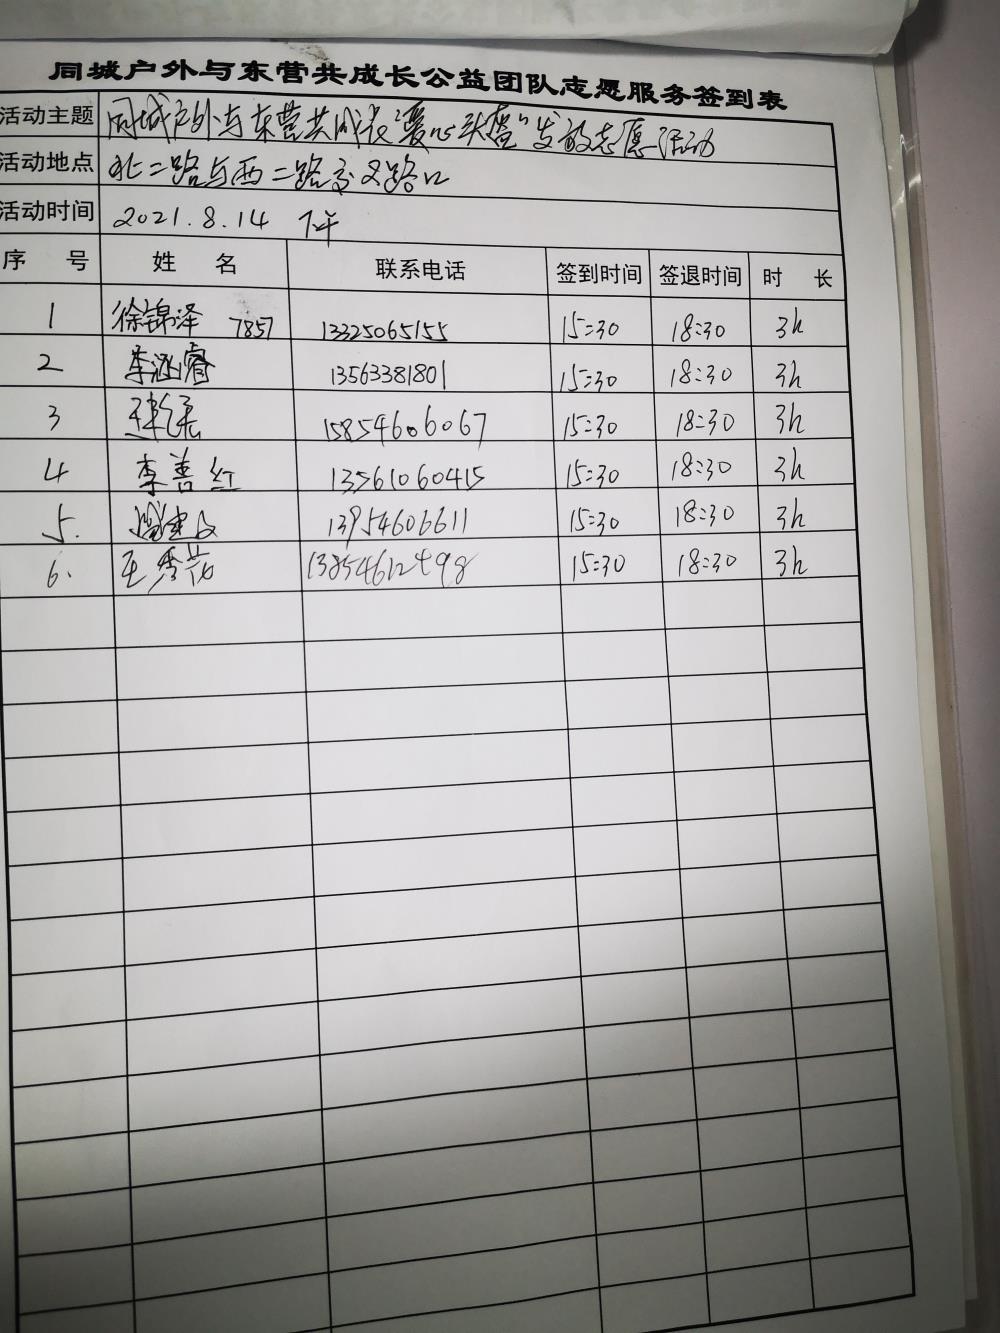 同城户外与东营共成长公益团队志愿服务签到表
活动主题 同城户外与东营共成长"爱心头盔"发放志愿活动
活动地点 北二路与西二路交叉路口
活动时间 2021.8.14 下午
序 号 姓 名 联系电话 签到时间 签退时间 时 长
1 徐锦泽 7857 13325065155 15:30 18:30 3h
2 李涵睿 13563381801 15:30 18:30 3h
3 15854606067 15:30 18:30 3h
4 李善红 13561060415 15:30 18:30 3h
5. 13954606611 15:30 18:30 3h
6. 王秀芬 13854612498 15:30 18:30 3h